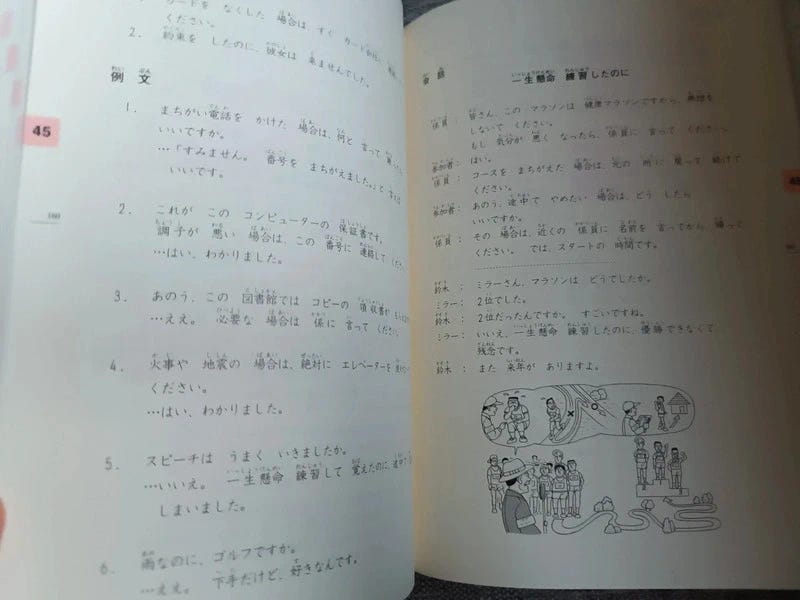 カードを なくした 場合は、すぐ カード会社に
ください。
2. 約束を したのに、彼女は 来ませんでした。
例文
1. まちがい電話を かけた 場合は、何と 言って
いいですか。
…「すみません。 番号を まちがえました。」と 言えば
いいです。
2. これが この コンピューターの 保証書です。
調子が 悪い 場合は、この 番号に 連絡して くだ
…はい、わかりました。
3. あのう、この 図書館では コピーの 領収書が
…ええ。 必要な 場合は 係に 言って ください。
4. 火事や 地震の 場合は、絶対に エレベーターを
ください。
…はい、わかりました。
5. スピーチは うまく いきましたか。
…いいえ。 一生懸命 練習して 覚えたのに、途中で
しまいました。
6. 雨なのに、ゴルフですか。
…ええ。 下手だけど、好きなんです。
45
160
会話
一生懸命 練習したのに
係員: 皆さん、この マラソンは 健康マラソンですから、無理を
しないで ください。
もし 気分が 悪く なったら、係員に 言って ください。
参加者: はい。
係員: コースを まちがえた 場合は、元の 所に 戻って 続けて
ください。
参加者: あのう、途中で やめたい 場合は、どう したら
いいですか。
係員: その 場合は、近くの 係員に 名前を 言ってから、帰って
ください。 では、スタートの 時間です。
鈴木: ミラーさん、マラソンは どうでしたか。
ミラー: 2位でした。
鈴木: 2位だったんですか。 すごいですね。
ミラー: いいえ、一生懸命 練習したのに、優勝できなくて
残念です。
鈴木: また 来年が ありますよ。
45